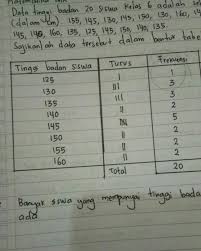 Data tinggi badan 20 siswa kelas 6 adalah
(dalam cm) 155, 145, 130, 145, 150, 130, 160,
145, 140, 160, 135, 125, 145, 150, 140, 135.
Sajikanlah data tersebut dalam bentuk tabe
Tinggi badan siswa Turus Frekuensi
125 I 1
130 III 3
135 III 3
140 II 2
145 5
150 II 2
155 II 2
160 II 2
Total 20
Banyak siswa yang mempunyai tinggi bada
ada